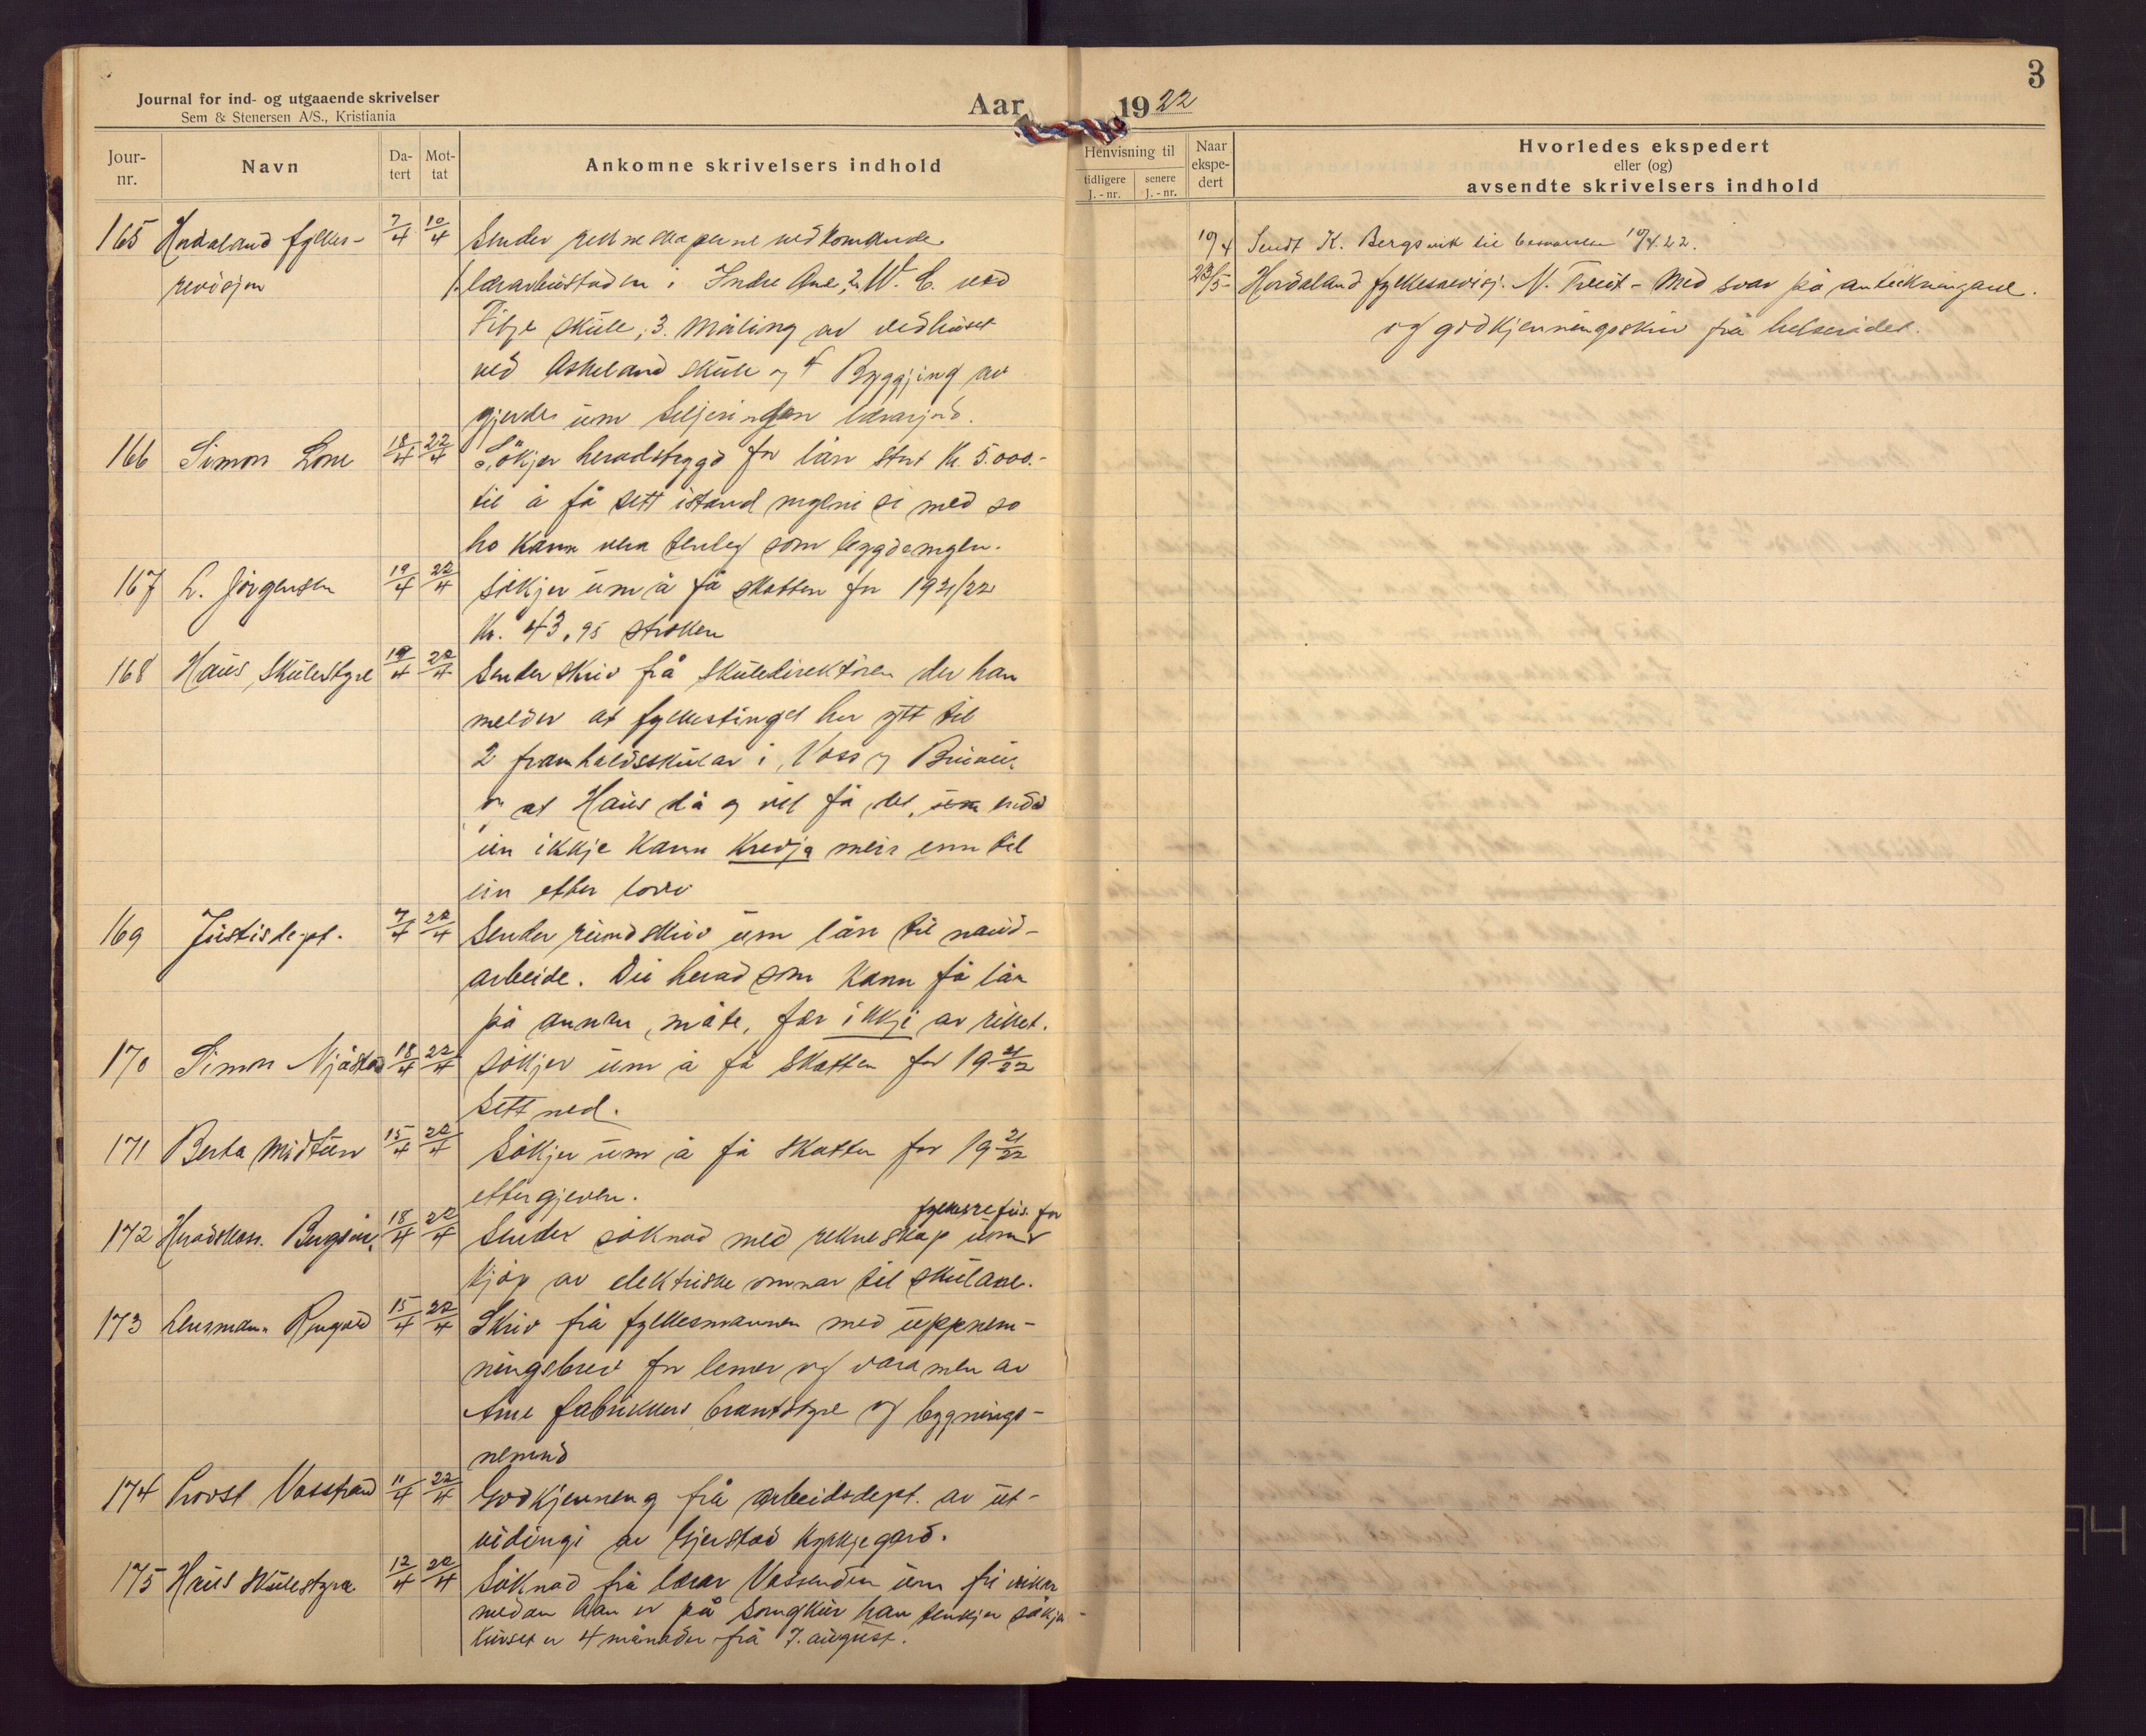 3
Journal for ind- og utgaaende skrivelser
Sem & Stenersen A/S., Kristiania
Aar 1922
Jour-nr.
Navn
Da-tert
Mot-tat
Ankomne skrivelsers indhold
Henvisning til
tidligere J.-nr.
senere J.-nr.
Naar ekspe-dert
Hvorledes ekspedert
eller (og)
avsendte skrivelsers indhold
165 Hordaland fylkes- 7/4 10/4 Sender rekneskaperne vedkomande
revisjon 1. lærarbustaden i Indre Arne, 2. W. C. ved
skule, 3. Måling av vedhuset
ved Askeland skule og 4 Byggjing av
gjerde um lærarjord.
19/4 Sendt K. Bergsvik til 19/4.22.
23/5 Hordaland fylkesrevisj. N. Tveit - Med svar på anteikningane.
og godkjenningsskriv frå helserådet.
166 Simon Lone 18/4 22/4 Søkjer heradstyret for lån stort Kr. 5.000.-
til å få sett istand mylni si med so
ho kann vera tenleg som bygdemylna.
167 L. Jørgensen 19/4 22/4 Søkjer um å få skatten for 1921/22
Kr. 43,95 stroken
168 Haus skulestyre 19/4 22/4 Sender skriv frå skuledirektøren der han
melder at fylkestinget har ytt til
2 framhaldsskular i Voss og Bruvik
og at Haus då og vil få det, um endå
ein ikkje kann krevja meir enn til
ein etter lovi
169 Justisdept. 7/4 22/4 Sender rundskriv um lån til naud-
arbeide. Dei herad som kann få lån
på annan måte, fær ikkje av riket.
170 Simon Njåstad 18/4 22/4 Søkjer um å få skatten for 19 21/22
sett ned.
171 Berta Midttun 15/4 22/4 Søkjer um å få skatten for 19 21/22
ettergjeven.
172 Heradskass. Bergsvik 18/4 22/4 Sender søknad med rekneskap um fylkesrefus. for
kjøp av elektriske omnar til skulane.
173 Lensmann 15/4 22/4 Skriv frå fylkesmannen med uppnem-
ningsbrev for lemer og varamen av
Arne fabrikkers brantstyre og bygnings-
nemnd
174 Provst Vasstrand 11/4 22/4 Godkjenning frå arbeidsdept. av ut-
vidingi av Gjerstad kyrkjegard.
175 Haus skulestyre 12/4 22/4 Søknad frå lærar Vassenden um fri vikar
medan han er på songkur han tenkjer søkja -
Kurset er 4 månader frå 7. august.